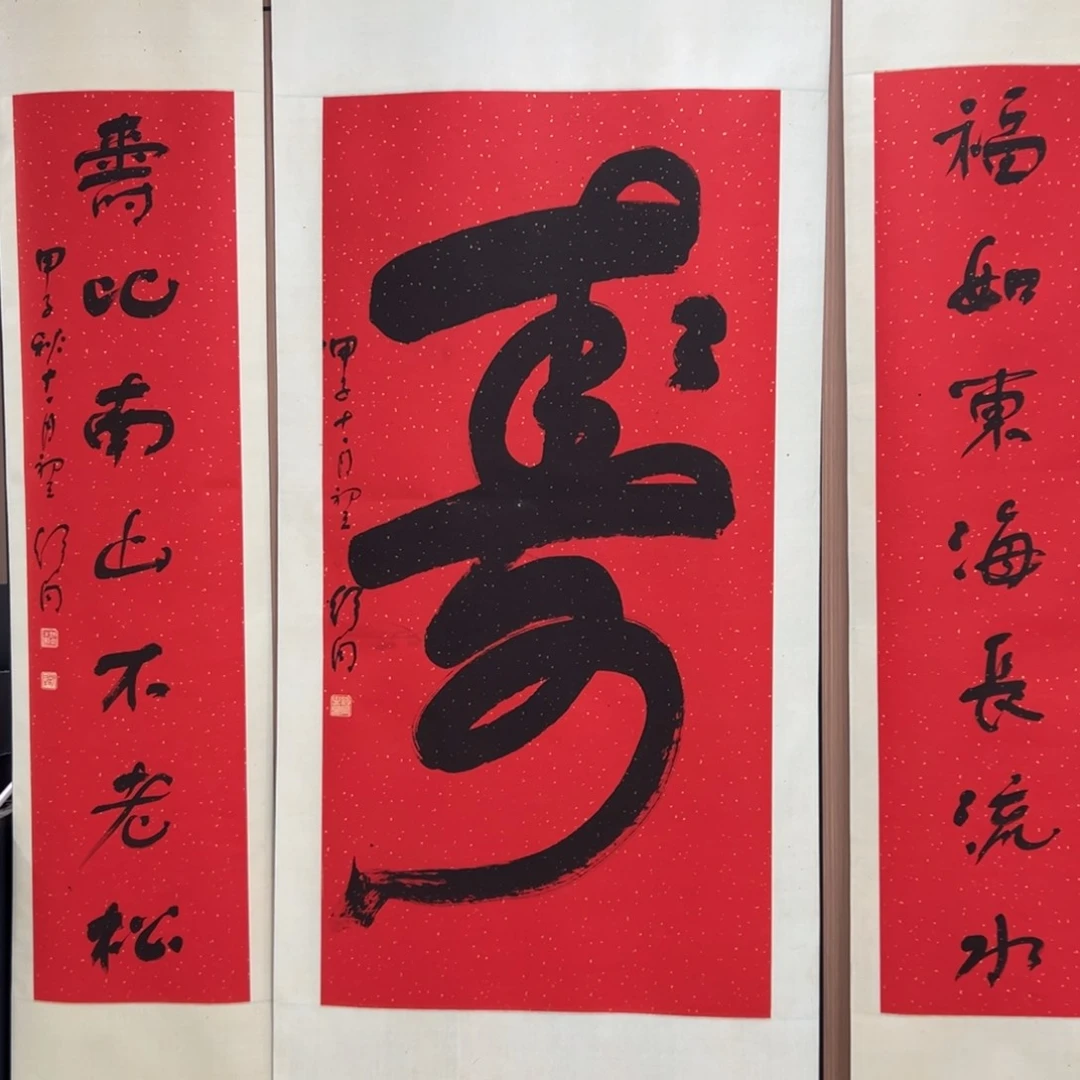 福如東海長流水
壽
甲子十月
舒同
壽比南山不老松
甲子秋十月
舒同